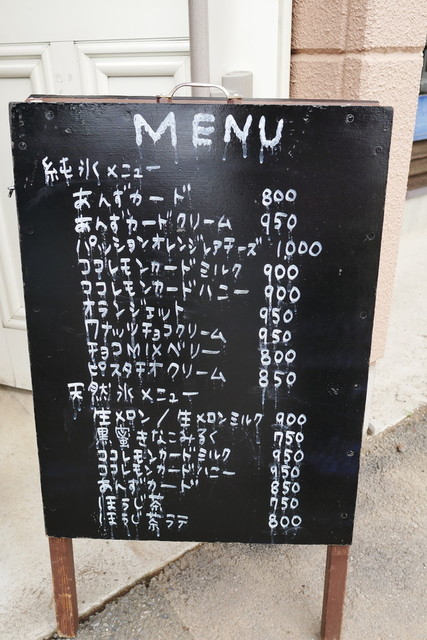 MENU
純氷メニュー
あんずカード 800
あんずカードクリーム 950
パッションオレンジレアチーズ 1000
ココレモンカードミルク 900
ココレモンカードハニー 900
オランジェット 950
ココナッツチョコクリーム 950
チョコMIXベリー 800
ピスタチオクリーム 850
天然氷メニュー
生メロン/生メロンミルク 900
黒蜜きなこみるく 750
ココレモンカードミルク 950
ココレモンカードハニー 950
あんずカード 850
ほうじ茶 750
ほうじ茶ラテ 800